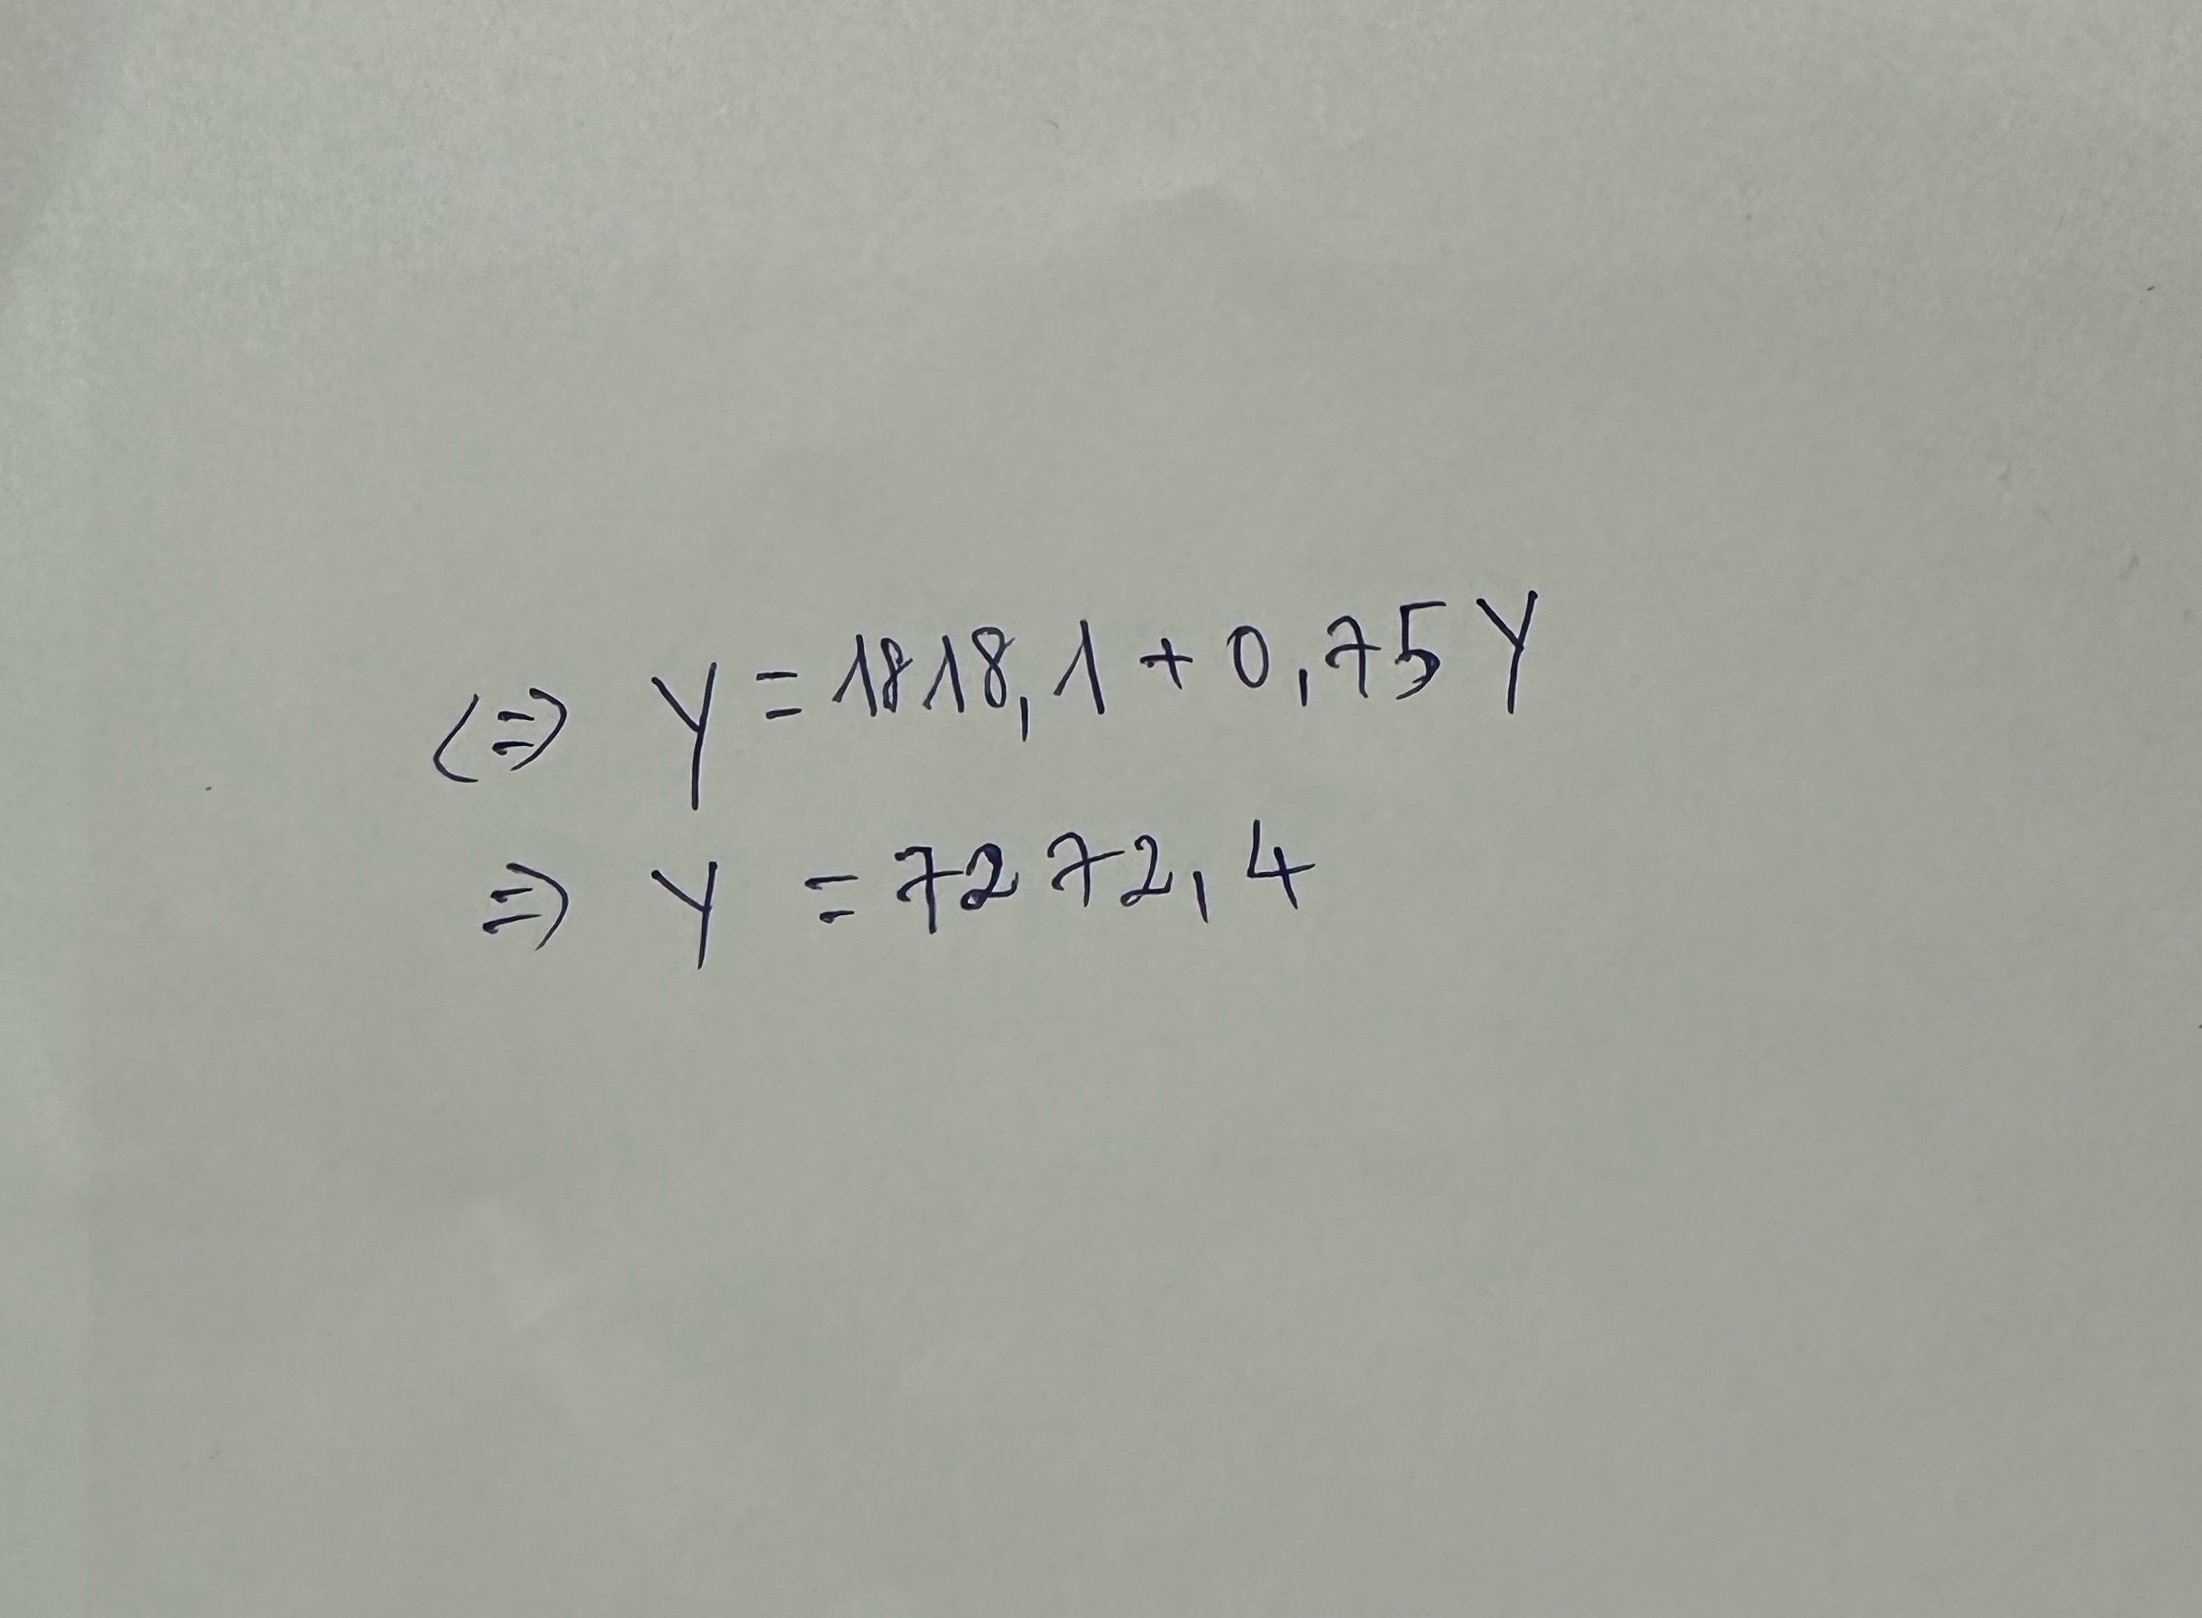 <=> Y = 1818,1 + 0,75Y
=> Y = 7272,4